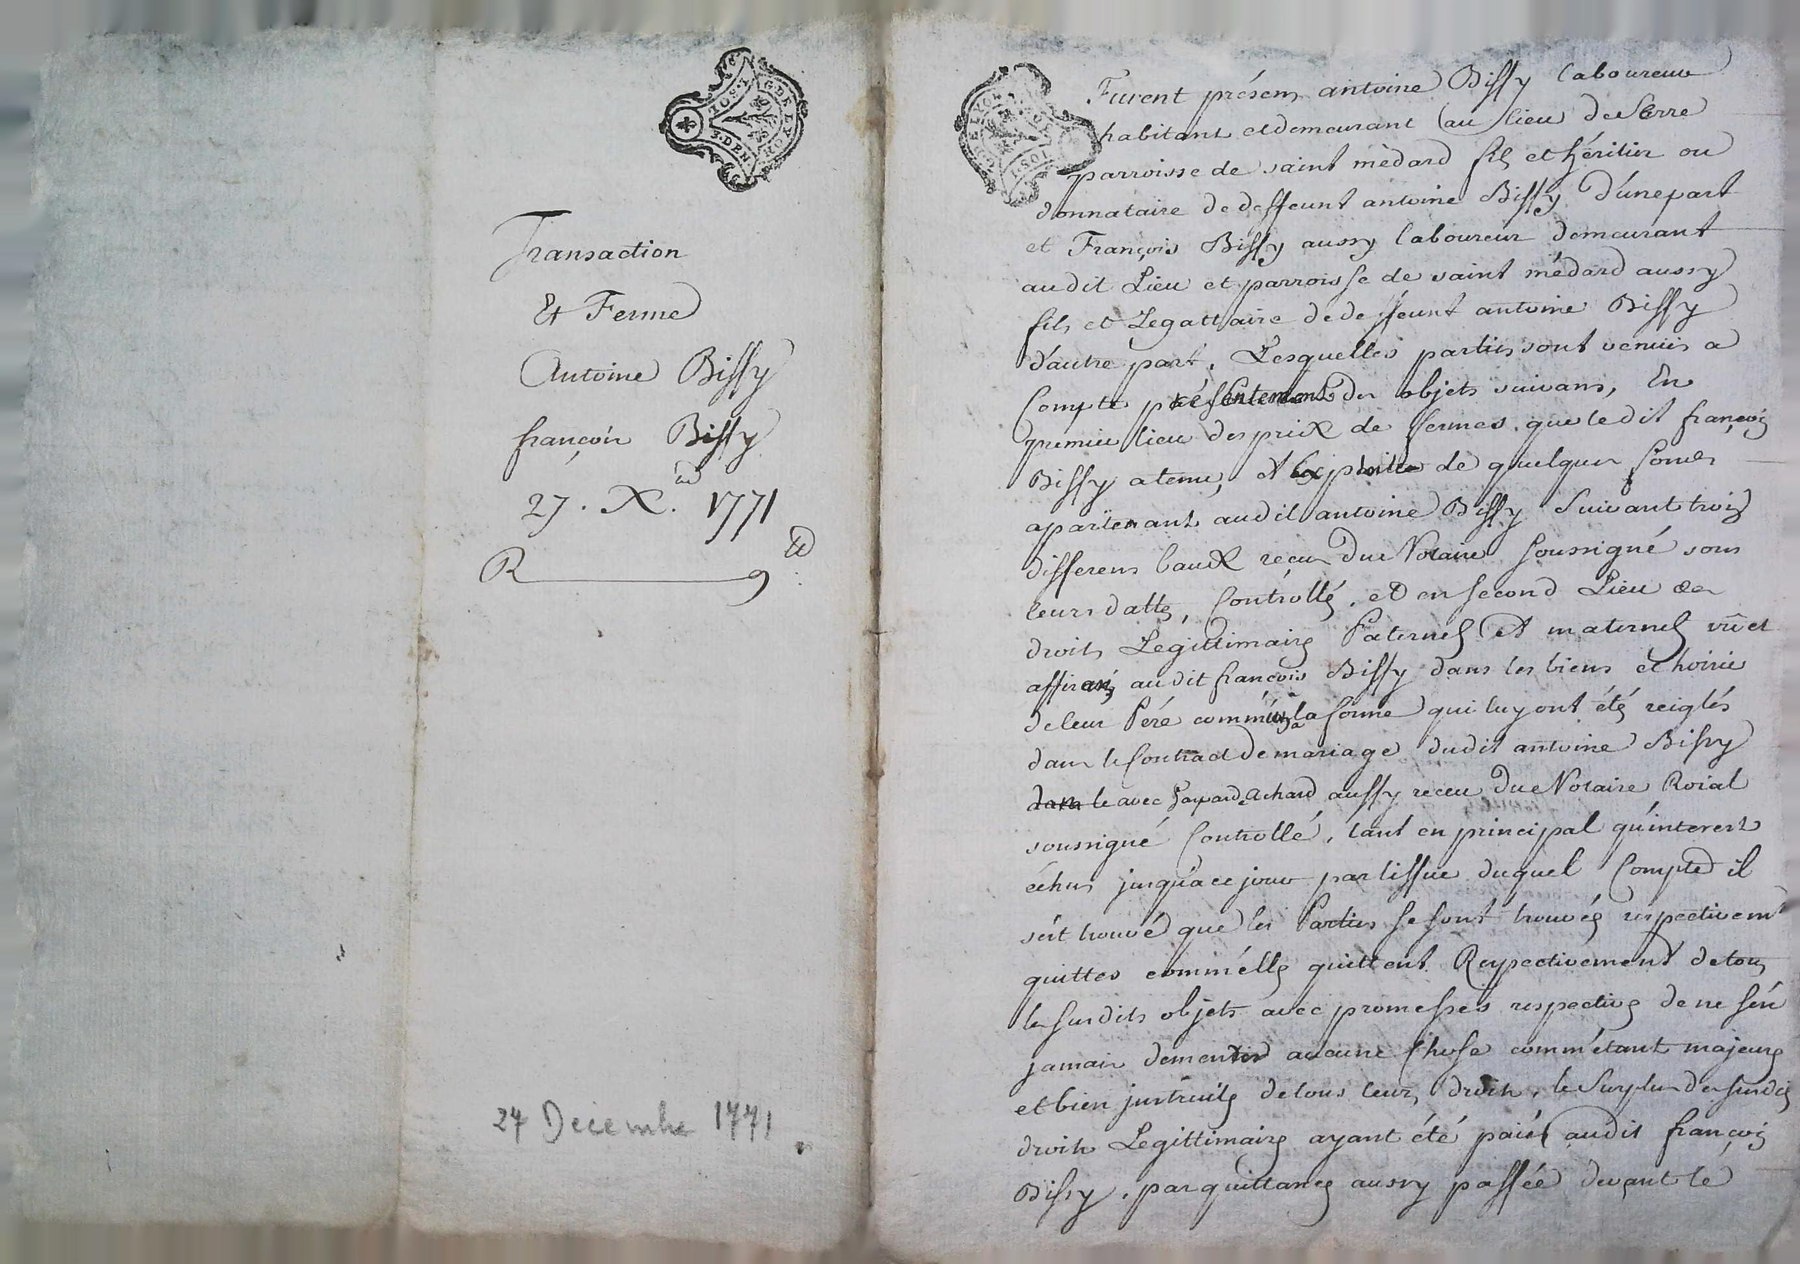 G. DE LYON
1 SOL
3 DEN
Transaction
Et Ferme
Antoine Bissy
françois Bissy
27. X.bre 1771
R
24 Decembre 1771
G. DE LYON
1 SOL
Furent présens antoine Bissy laboureur
habitant et demeurant au lieu de Serre
parroisse de saint mèdard fils et héritier ou
donnataire de deffeunt antoine Bissy D'une part
et François Bissy aussy laboureur demeurant
audit Lieu et parroisse de saint médard aussy
fils et Legattaire de deffeunt antoine Bissy
d'autre part. Lesquelles parties sont venuis a
Compte présentement des objets suivans, En
premier lieu des prix de fermes que le dit françois
Bissy a tenu, et Exploitée de quelques fonds
apartenant audit antoine Bissy Suivant trois
differens baux reçeu Du Notaire Soussigné sous
leurs dattes, Controllés, et en second Lieu des
droits Legittimaires Paternels Et maternels
audit françois Bissy dans les biens et hoirie
de leur Péré comm'en la forme qui luy ont étés reiglés
dans le Contract de mariage dudit antoine Bissy
dans le avec Achard aussy receu Du Notaire Roial
soussigné Controllé, tant en principal qu'interest
échus jusqu'a ce jour par lissue duquel Compte il
s'est trouvé que les Parties se sont trouvés respectivemt
quittes comm'elles quittent Respectivement de tous
les susdits objets avec promesses respectives de ne s'en
jamais demender aucune Chose comm'etant majeurs
et bien justruits de tous leurs droits, le Surplus des susdits
droits Legittimaires ayant été paiés audit françois
Bissy, par quittances aussy passée devant le